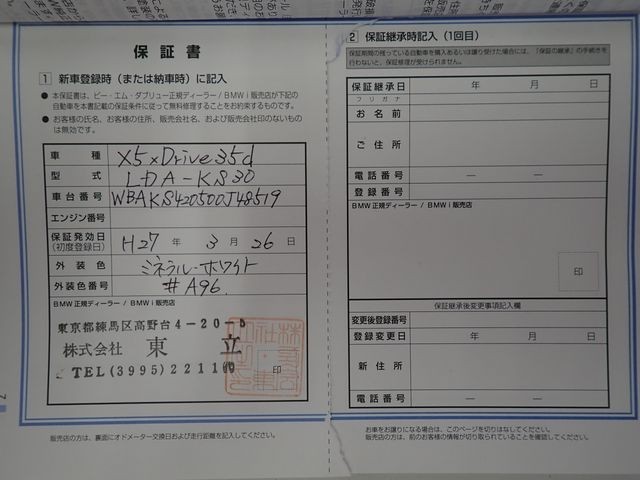 保証書
1 新車登録時（または納車時）に記入
● 本保証書は、ビー・エム・ダブリュー正規ディーラー / BMW i 販売店が下記の
自動車を本書記載の保証条件に従って無料修理することをお約束するものです。
● お客様の氏名、お客様の住所、販売会社名、および販売会社印のないもの
は無効です。
車種 X5 xDrive 35d
型式 LDA-KS30
車台番号 WBAKS420500J48519
エンジン番号
保証発効日
(初度登録日) H27 年 3 月 26 日
外装色 ミネラル・ホワイト
外装色番号 # A96.
BMW 正規ディーラー / BMW i 販売店
東京都練馬区高野台4-20-
株式会社 東立
TEL(3995)2211㈹
印
販売店の方は、裏面にオドメーター交換日および走行距離を記入してください。
7
2 保証継承時記入（1回目）
保証期間の残っている自動車を購入あるいは譲り受けた場合には、「保証の継承」の手続きを
行わないと、保証修理が受けられません。
保証継承日 年 月 日
フリガナ
お名前
ご住所
電話番号 — —
登録番号
BMW 正規ディーラー / BMW i 販売店
印
保証継承後変更事項記入欄
変更後登録番号
登録変更日 年 月 日
新住所
電話番号 — —
お車をお譲りになる場合は、このページを切りはなしてください。
販売店の方は、前のお客様の情報が切り取られていることを確認してください。